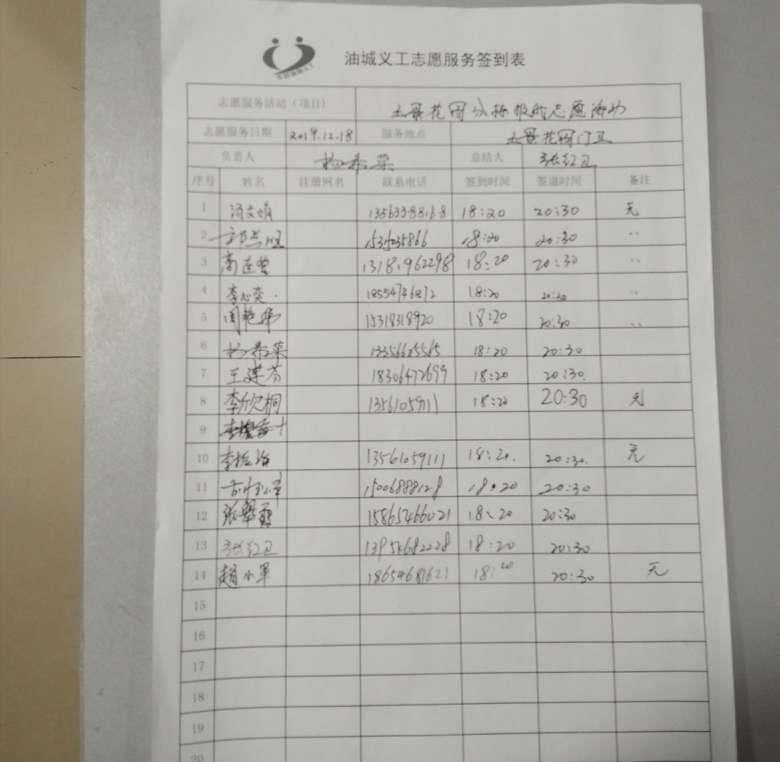 油城义工志愿服务签到表
志愿服务活动（项目） 花园分拣 志愿活动
志愿服务日期 2019.12.18 服务地点 花园门卫
负责人 杨希荣 总结人 张红卫
序号 姓名 注册网名 联系电话 签到时间 签退时间 备注
1 18:20 20:30 无
2 18:20 20:30 〃
3 高莲曾 13181962298 18:20 20:30 〃
4 李心奕 18554746872 18:20 20:30 〃
5 周艳 15318318920 18:20 20:30 〃
6 杨希荣 13356625565 18:20 20:30
7 王建芳 18306472699 18:20 20:30
8 李欣桐 1356105911 18:20 20:30 无
9
10 13561059111 18:20. 20:30. 无
11 15006888128 18:20 20:30
12 15865466021 18:20 20:30
13 张红卫 13954682228 18:20 20:30
14 赵小军 18654681621 18:20 20:30 无
15
16
17
18
19
20